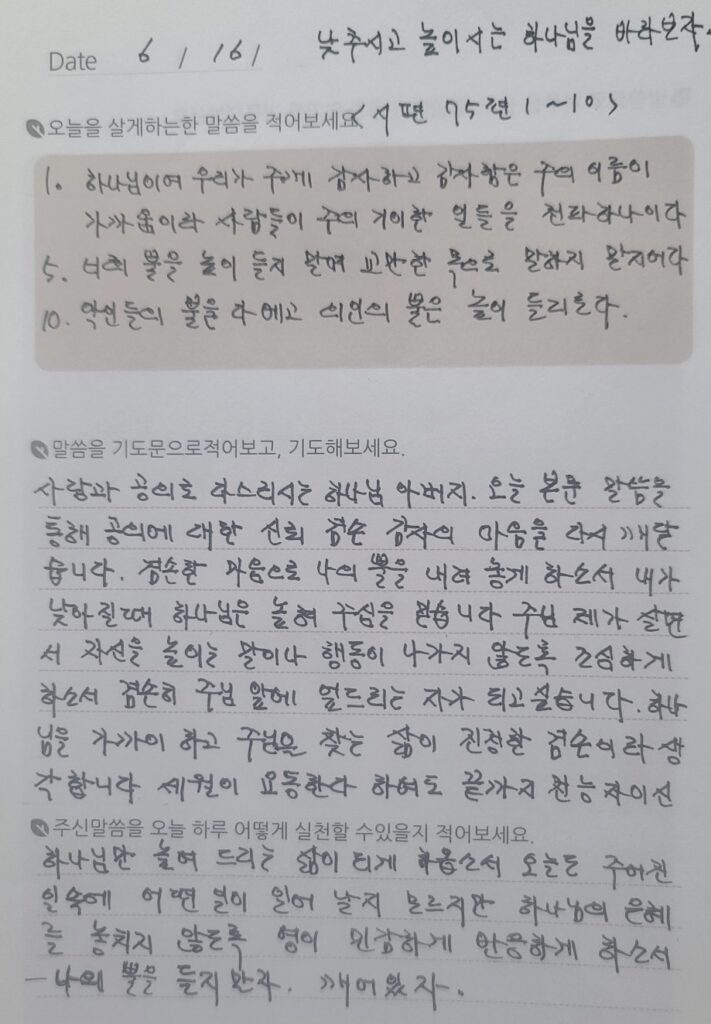 Date 6 / 16 /
낮추시고 높이시는 하나님을 바라보자.
오늘을 살게하는한 말씀을 적어보세요. <시편 75편 1~10>
1. 하나님이여 우리가 주께 감사하고 감사함은 주의 이름이
가까움이라 사람들이 주의 기이한 일들을 전파하나이다
5. 너희 뿔을 높이 들지 말며 교만한 목으로 말하지 말지어다
10. 악인들의 뿔을 다 베고 의인의 뿔은 높이 들리로다.
말씀을 기도문으로적어보고, 기도해보세요.
사랑과 공의로 다스리시는 하나님 아버지. 오늘 본문 말씀을
통해 공의에 대한 신뢰 겸손 감사의 마음을 다시 깨달
습니다. 겸손한 마음으로 나의 뿔을 내려 놓게 하소서 내가
낮아질때 하나님은 높여 주심을 믿습니다 주님 제가 살면
서 자신을 높이는 말이나 행동이 나가지 않도록 조심하게
하소서 겸손히 주님 앞에 엎드리는 자가 되고싶습니다. 하나
님을 가까이 하고 주님을 찾는 삶이 진정한 겸손이라 생
각합니다 세월이 요동한다 하여도 끝까지 전능자이신
주신말씀을 오늘 하루 어떻게 실천할 수있을지 적어보세요.
하나님만 높여 드리는 삶이 되게 하옵소서 오늘도 주어진
일속에 어떤 일이 일어 날지 모르지만 하나님의 은혜
를 놓치지 않도록 영이 민감하게 반응하게 하소서
- 나의 뿔을 들지 말자. 깨어있자.